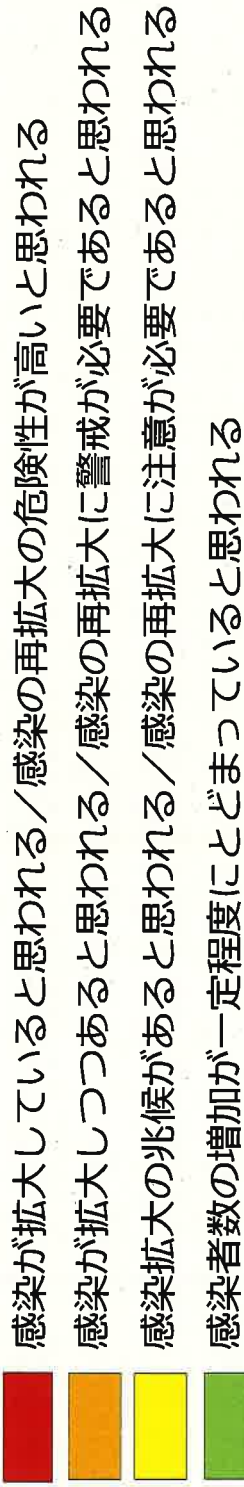 感染が拡大していると思われる／感染の再拡大の危険性が高いと思われる
感染が拡大しつつあると思われる／感染の再拡大に警戒が必要であると思われる
感染拡大の兆候があると思われる／感染の再拡大に注意が必要であると思われる
感染者数の増加が一定程度にとどまっていると思われる